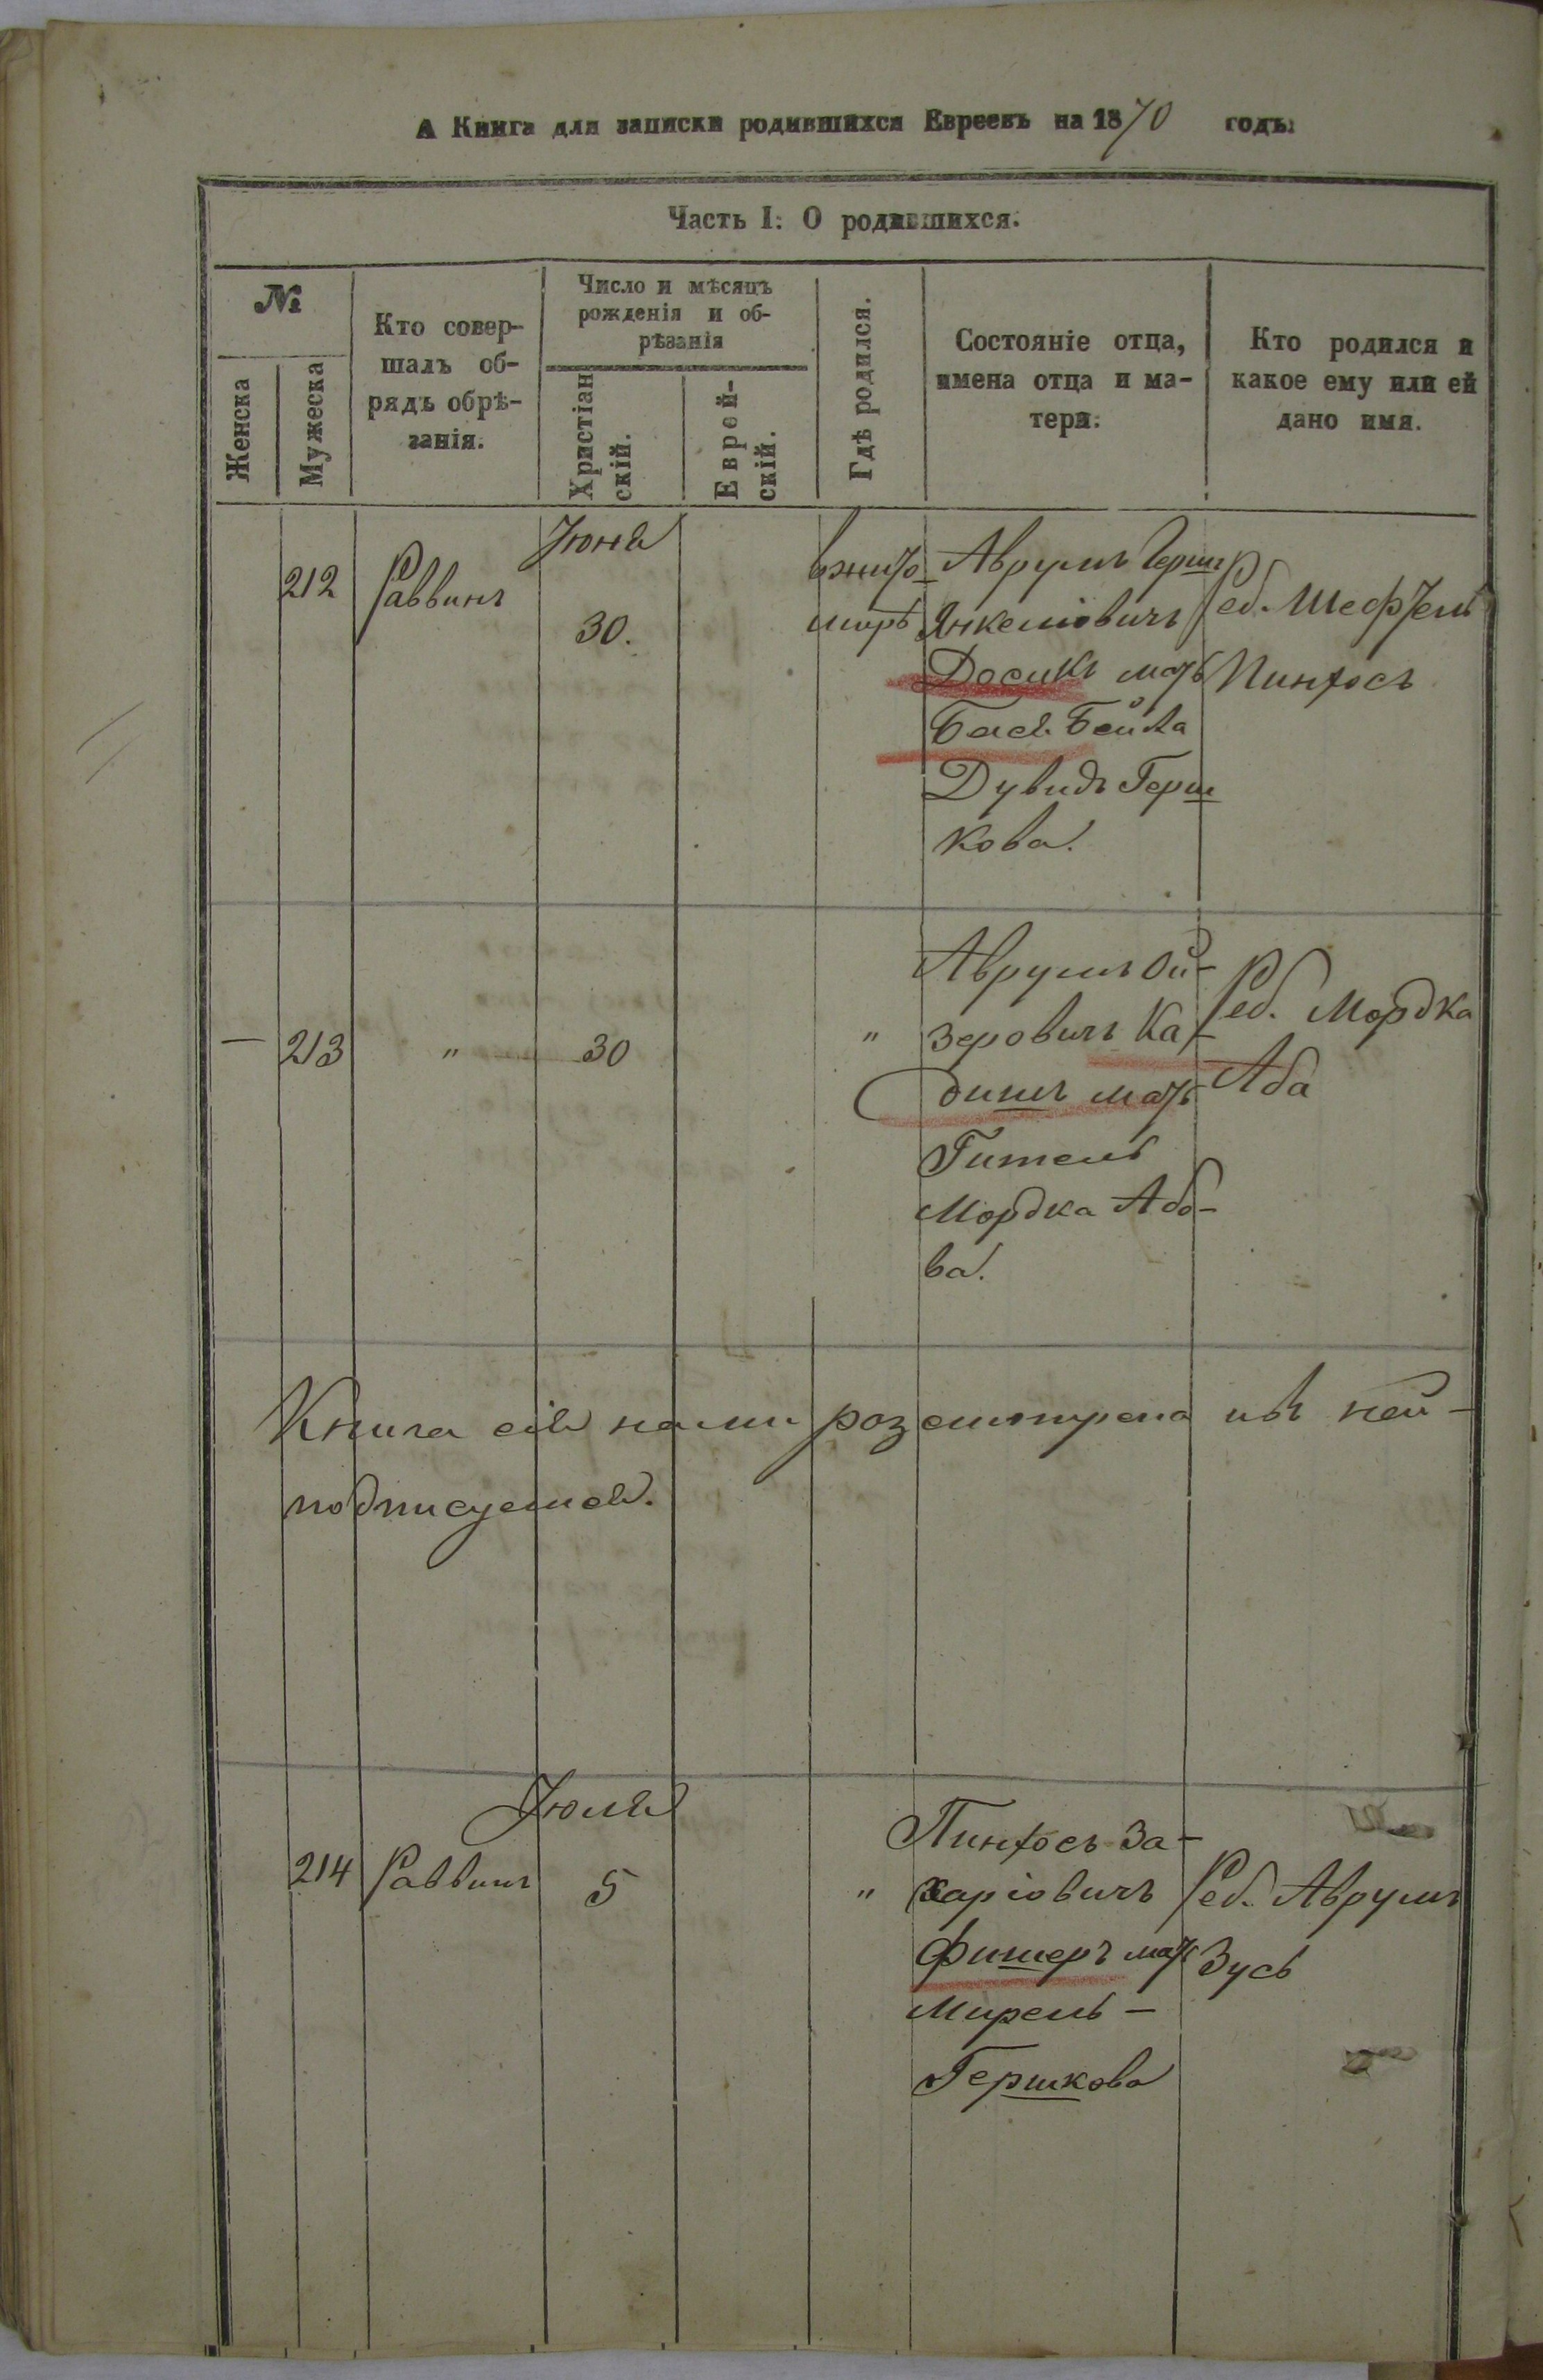 А Книга для записки родившихся Евреевъ на 1870 годъ.
Часть I. О родившихся.
№
Женска
Мужеска
Кто совер-
шалъ об-
рядъ обрѣ-
занія.
Число и мѣсяцъ
рожденія и об-
рѣзанія
Христіан
скій.
Еврей-
скій.
Гдѣ родился.
Состояніе отца,
имена отца и ма-
тери.
Кто родился и
какое ему или ей
дано имя.
Іюня
212
Раввинъ
30.
вжито
мирѣ
Аврумъ Герш
Янкеліовичъ
Досикъ мать
Бася Бейла
Дувидъ Герш
кова.
Реб.
Пинхосъ
— 213
„
30
„
Аврумъ Ой-
зеровичъ Ка-
дишъ мать
Гитель
Мордка Або-
ва.
Реб. Мордка
Аба
Книга сія нами розсмотрена ивъ ней-
подписуемся.
Іюля
214
Раввинъ
5
„
Пинхосъ За-
харіовичъ
Фишеръ мать
Мирель —
Гершкова
Реб. Аврумъ
Зусь